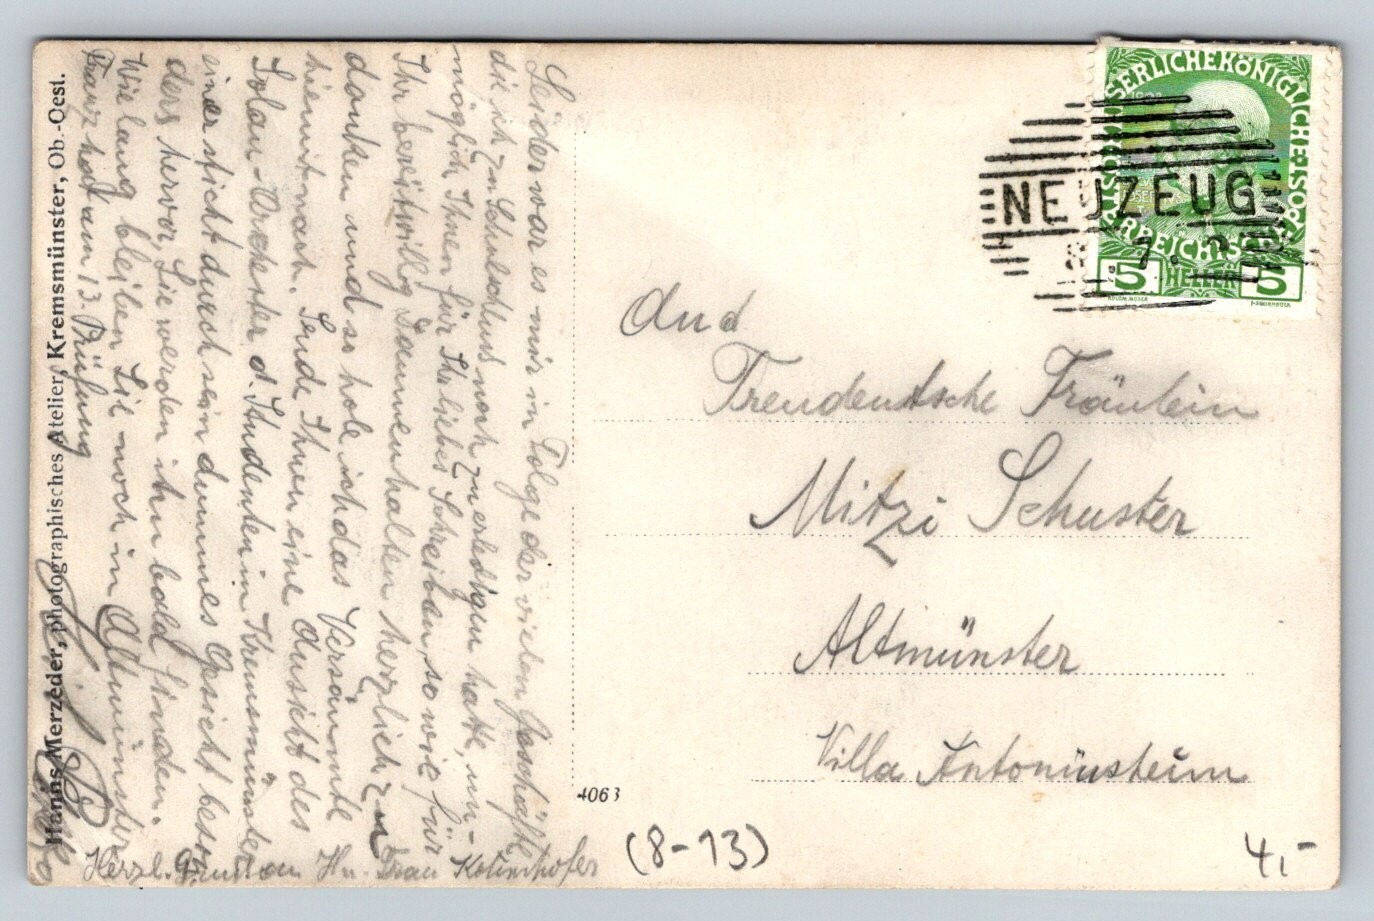 Leider war es mir in Folge der vielen Geschäfte
die ich zu Schulschluß noch zu erledigen hatte, un-
möglich Ihnen für Ihr liebes Schreiben, so wie für
Ihr bereitwillig Daumenhalten herzlich zu
danken und so hole ich das Versäumte
hiemit nach. Sende Ihnen eine Ansicht des
Solan-Orchester d. Studenten in Kremsmünster
einer sticht durch sein dummes Gesicht beson
ders hervor Sie werden ihn bald finden.
Wie lang bleiben Sie noch in Altmünster
Franz hat am 13. Prüfung
Herzl. Gruß von Hr. Frau
Hanns Merzeder, photographisches Atelier, Kremsmünster, Ob.-Oest.
4063
KAISERLICHEKÖNIGLICHE POST
ÖSTERREICHISCHE
5 HELLER 5
KOLOM. MOSER
F. SCHIRNBÖCK
NEUZEUG
And
Fräulein
Mitzi Schuster
Altmünster
Villa Antoniusheim
(8-13)
4,-